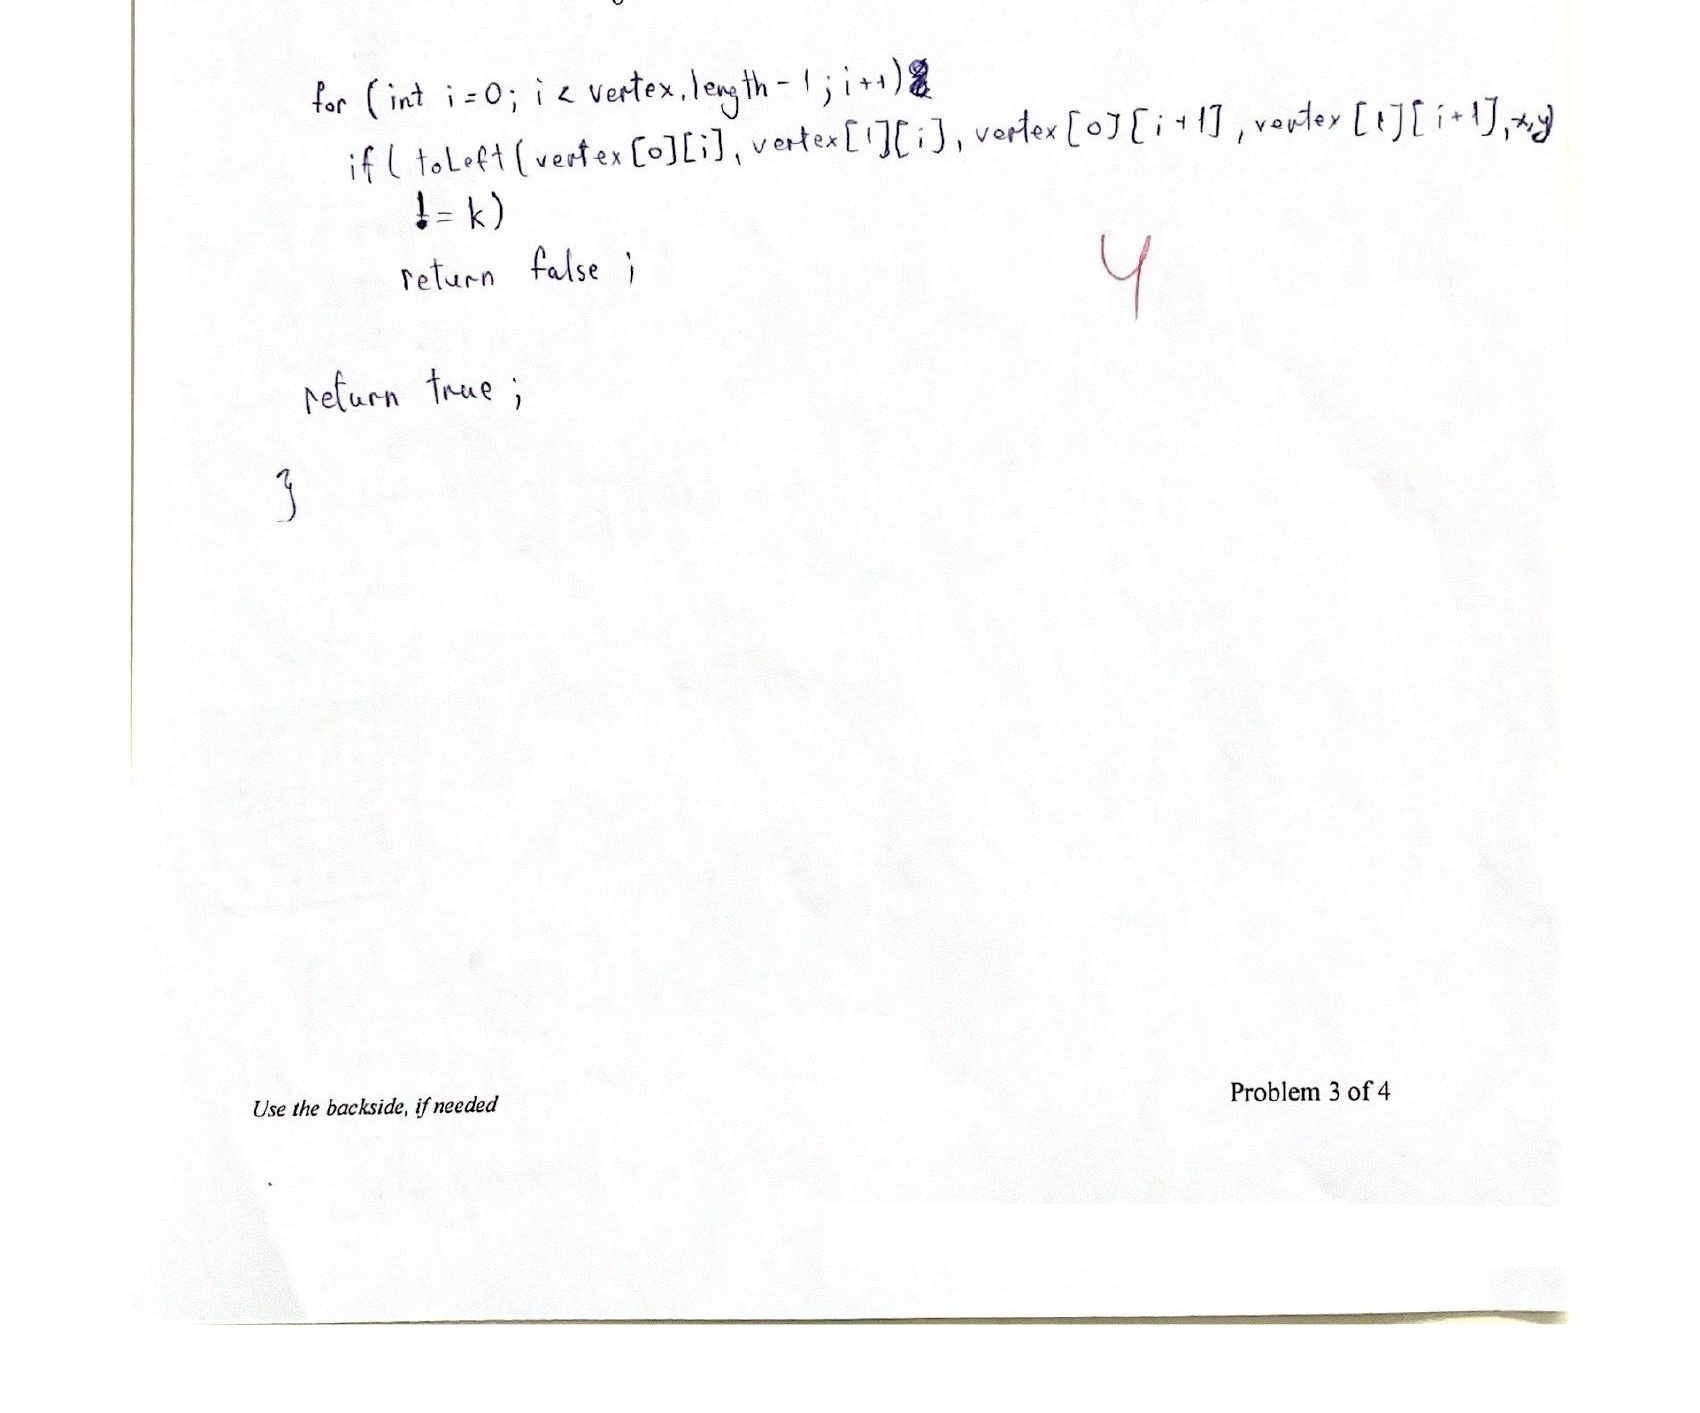 for (int i=0; i < vertex.length-1; i++)
if( toLeft(vertex[0][i], vertex[1][i], vertex[0][i+1], vertex[1][i+1],x,y)
!= k)
return false ;
4
return true ;
}
Problem 3 of 4
Use the backside, if needed